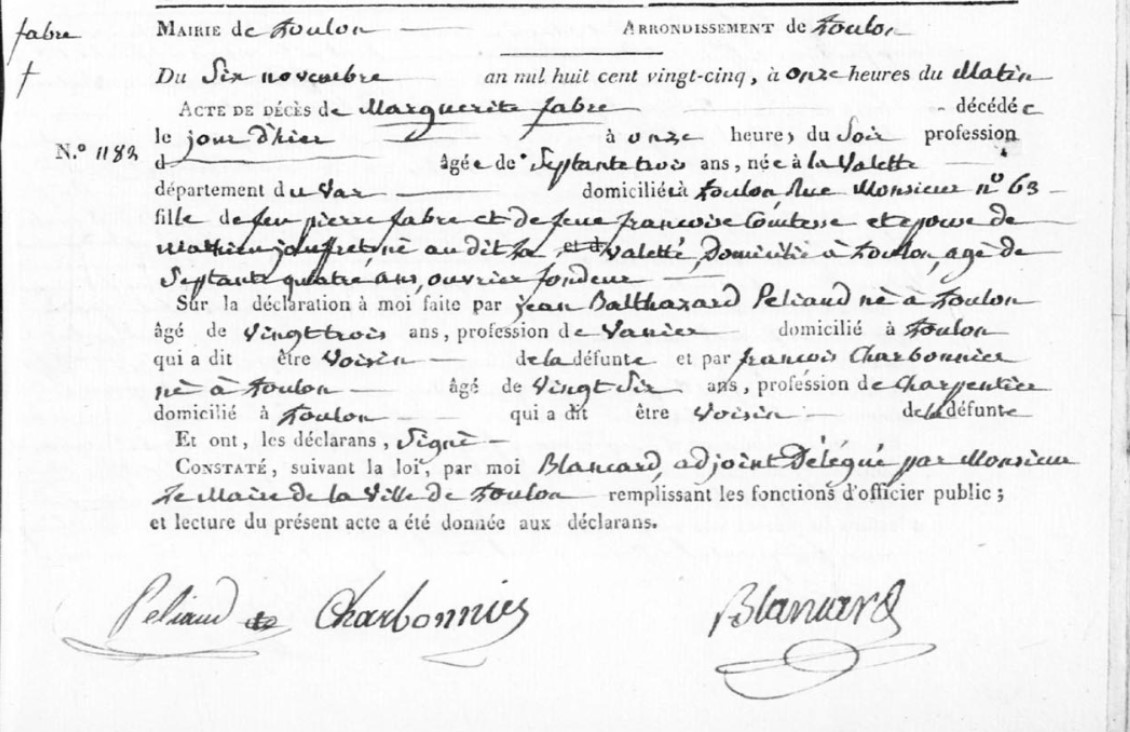 fabre
†
Mairie de Toulon Arrondissement de Toulon
Du Six novembre an mil huit cent vingt-cinq, à onze heures du Matin
Acte de décès de Marguerite fabre décédée
le jour d'hier à onze heures du Soir profession
N.º 1183
d âgée de Septante trois ans, née à la Valette
département du Var domiciliée à Toulon Rue Monsieur nº 63
fille de feu pierre fabre et de feue francoise Comtesse et epouse de
Mathieu jauffret, né au dit La et d Valette, Domicilié à Toulon, agé de
Septante quatre ans, ouvrier fondeur
Sur la déclaration à moi faite par jean Balthazard Peliaud né a Toulon
âgé de Vingt trois ans, profession de Vanier domicilié à Toulon
qui a dit être Voisin de la défunte et par francois Charbonnier
né à Toulon âgé de Vingt Six ans, profession de Charpentier
domicilié à Toulon qui a dit être Voisin de la défunte
Et ont, les déclarans, Signé
Constaté, suivant la loi, par moi Blancard, adjoint Délégué par Monsieur
Le Maire de la Ville de Toulon remplissant les fonctions d'officier public;
et lecture du présent acte a été donnée aux déclarans.
Peliaud Charbonnier Blancard